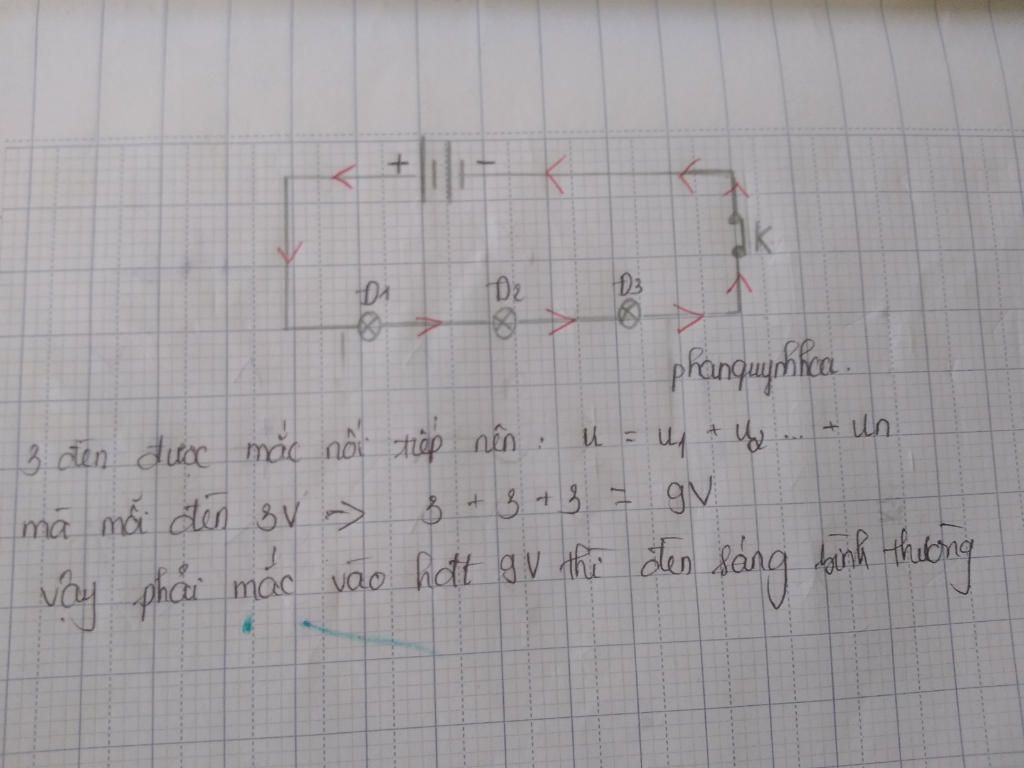 + -
K
Đ1 Đ2 Đ3
phanquynhhoa.
3 đèn được mắc nối tiếp nên: u = u1 + u2 ... + un
mà mỗi đèn 3V => 3 + 3 + 3 = 9V
Vậy phải mắc vào hđt 9V thì đèn sáng bình thường